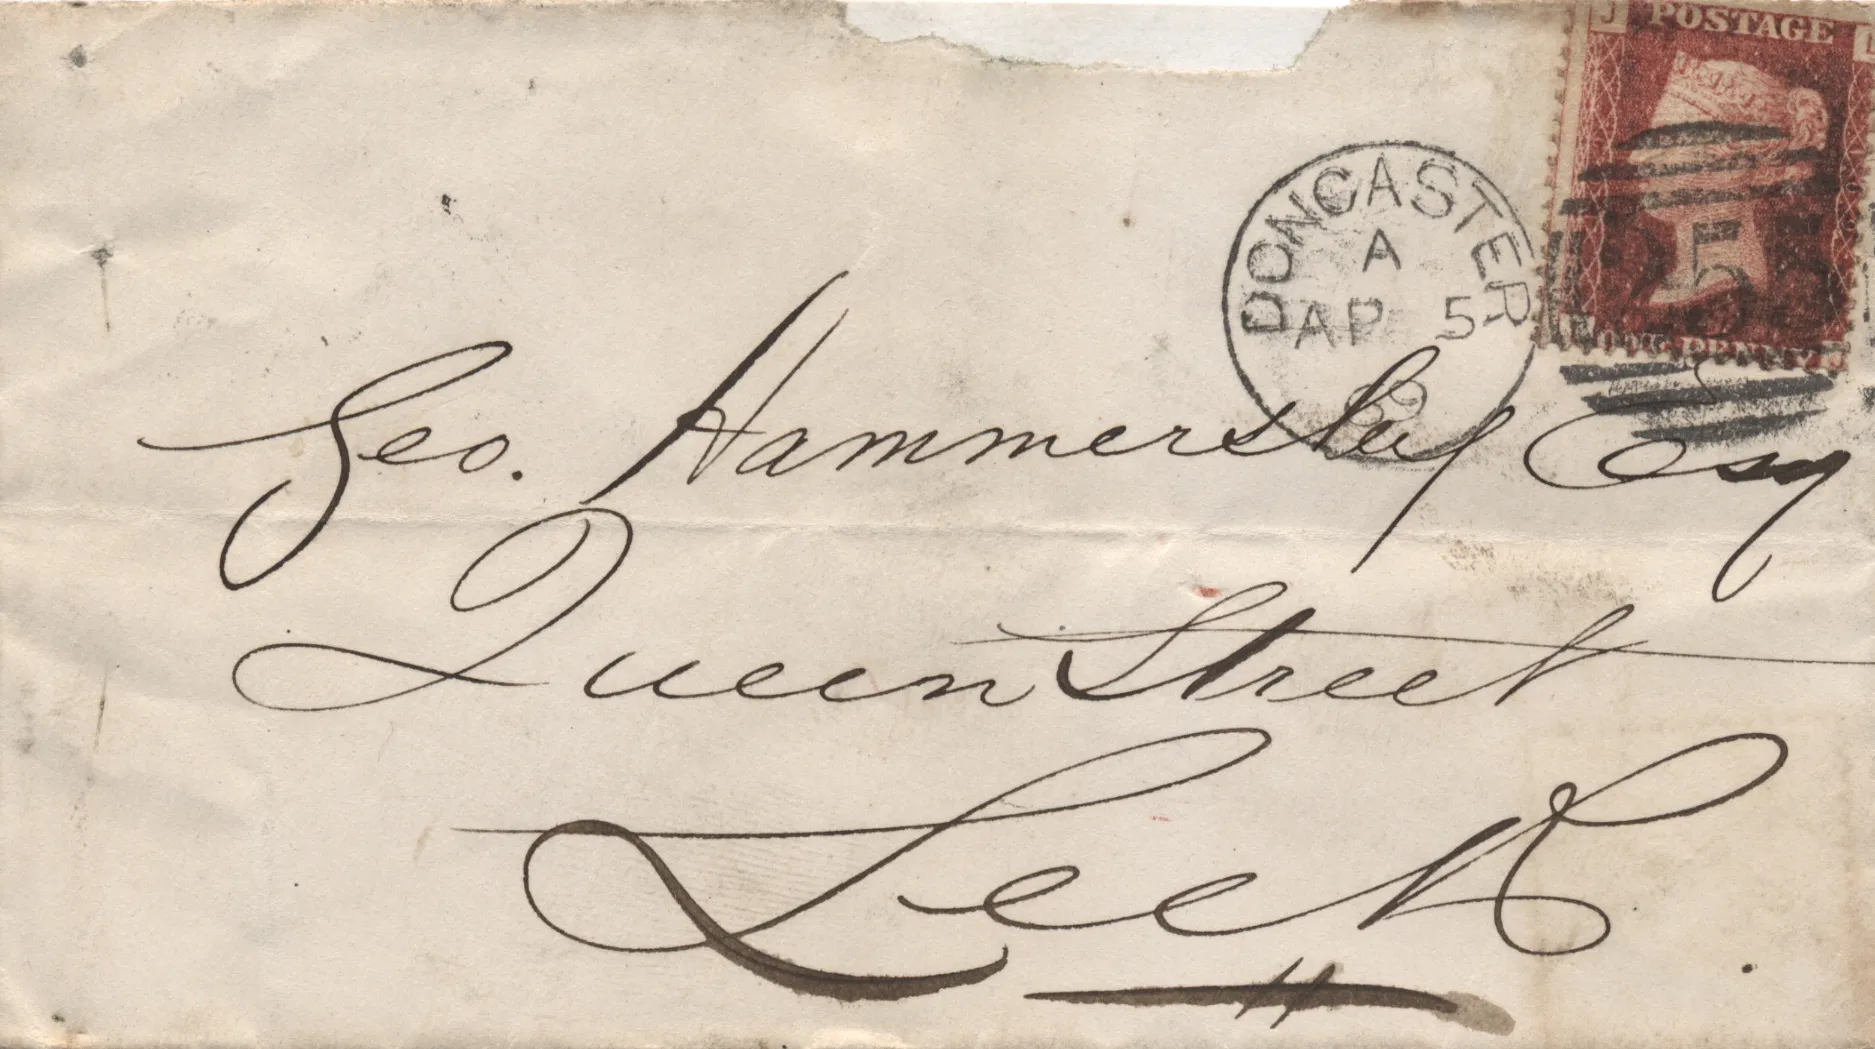 J POSTAGE
DONCASTER
A
AP 5
5
ONE PENNY
Geo. Hammersley Esq
Queen Street
Leek